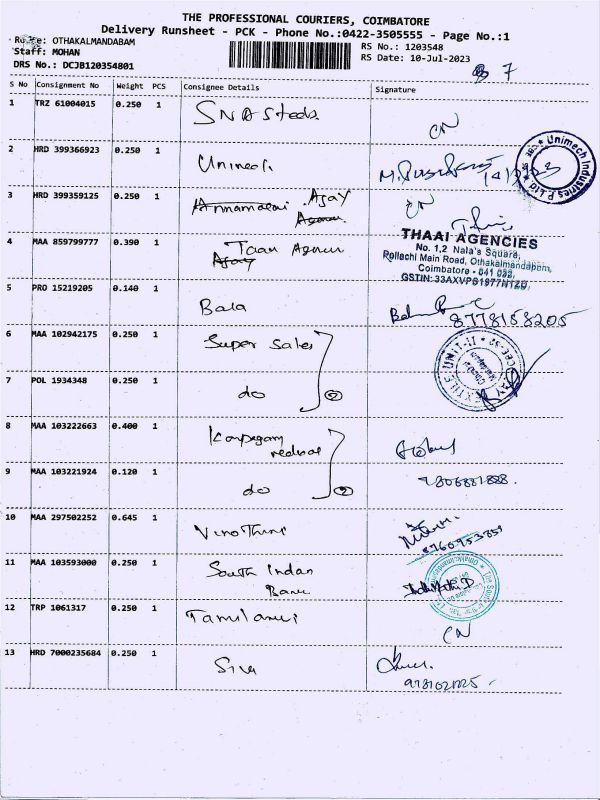 THE PROFESSIONAL COURIERS, COIMBATORE
Delivery Runsheet - PCK - Phone No.:0422-3505555 - Page No.:1
Route: OTHAKALMANDABAM
Staff: MOHAN
DRS No.: DCJB120354801
RS No.: 1203548
RS Date: 10-Jul-2023
7
S No Consignment No Weight PCS Consignee Details Signature
1 TRZ 61004015 0.250 1 SNA Steels
CN
2 HRD 399366923 0.250 1 Unimech
14/7/23
Unimech Industries P Ltd
3 HRD 399359125 0.250 1 Annamalai Ajay
CN
THAAI AGENCIES
No. 1,2 Nala's Square,
Pollachi Main Road, Othakalmandapam,
Coimbatore - 641 032.
GSTIN: 33AXVPS1977N1ZD,
4 MAA 859799777 0.390 1
Ajay
5 PRO 15219205 0.140 1 Bala
8778158205
6 MAA 102942175 0.250 1 Super Sales
7 POL 1934348 0.250 1 do 2
8 MAA 103222663 0.400 1 Karpagam
9 MAA 103221924 0.120 1 do 2
10 MAA 297502252 0.645 1 Vino Thini
8760953859
11 MAA 103593000 0.250 1 South Indian
Bank
12 TRP 1061317 0.250 1
CN
13 HRD 7000235684 0.250 1 Siva